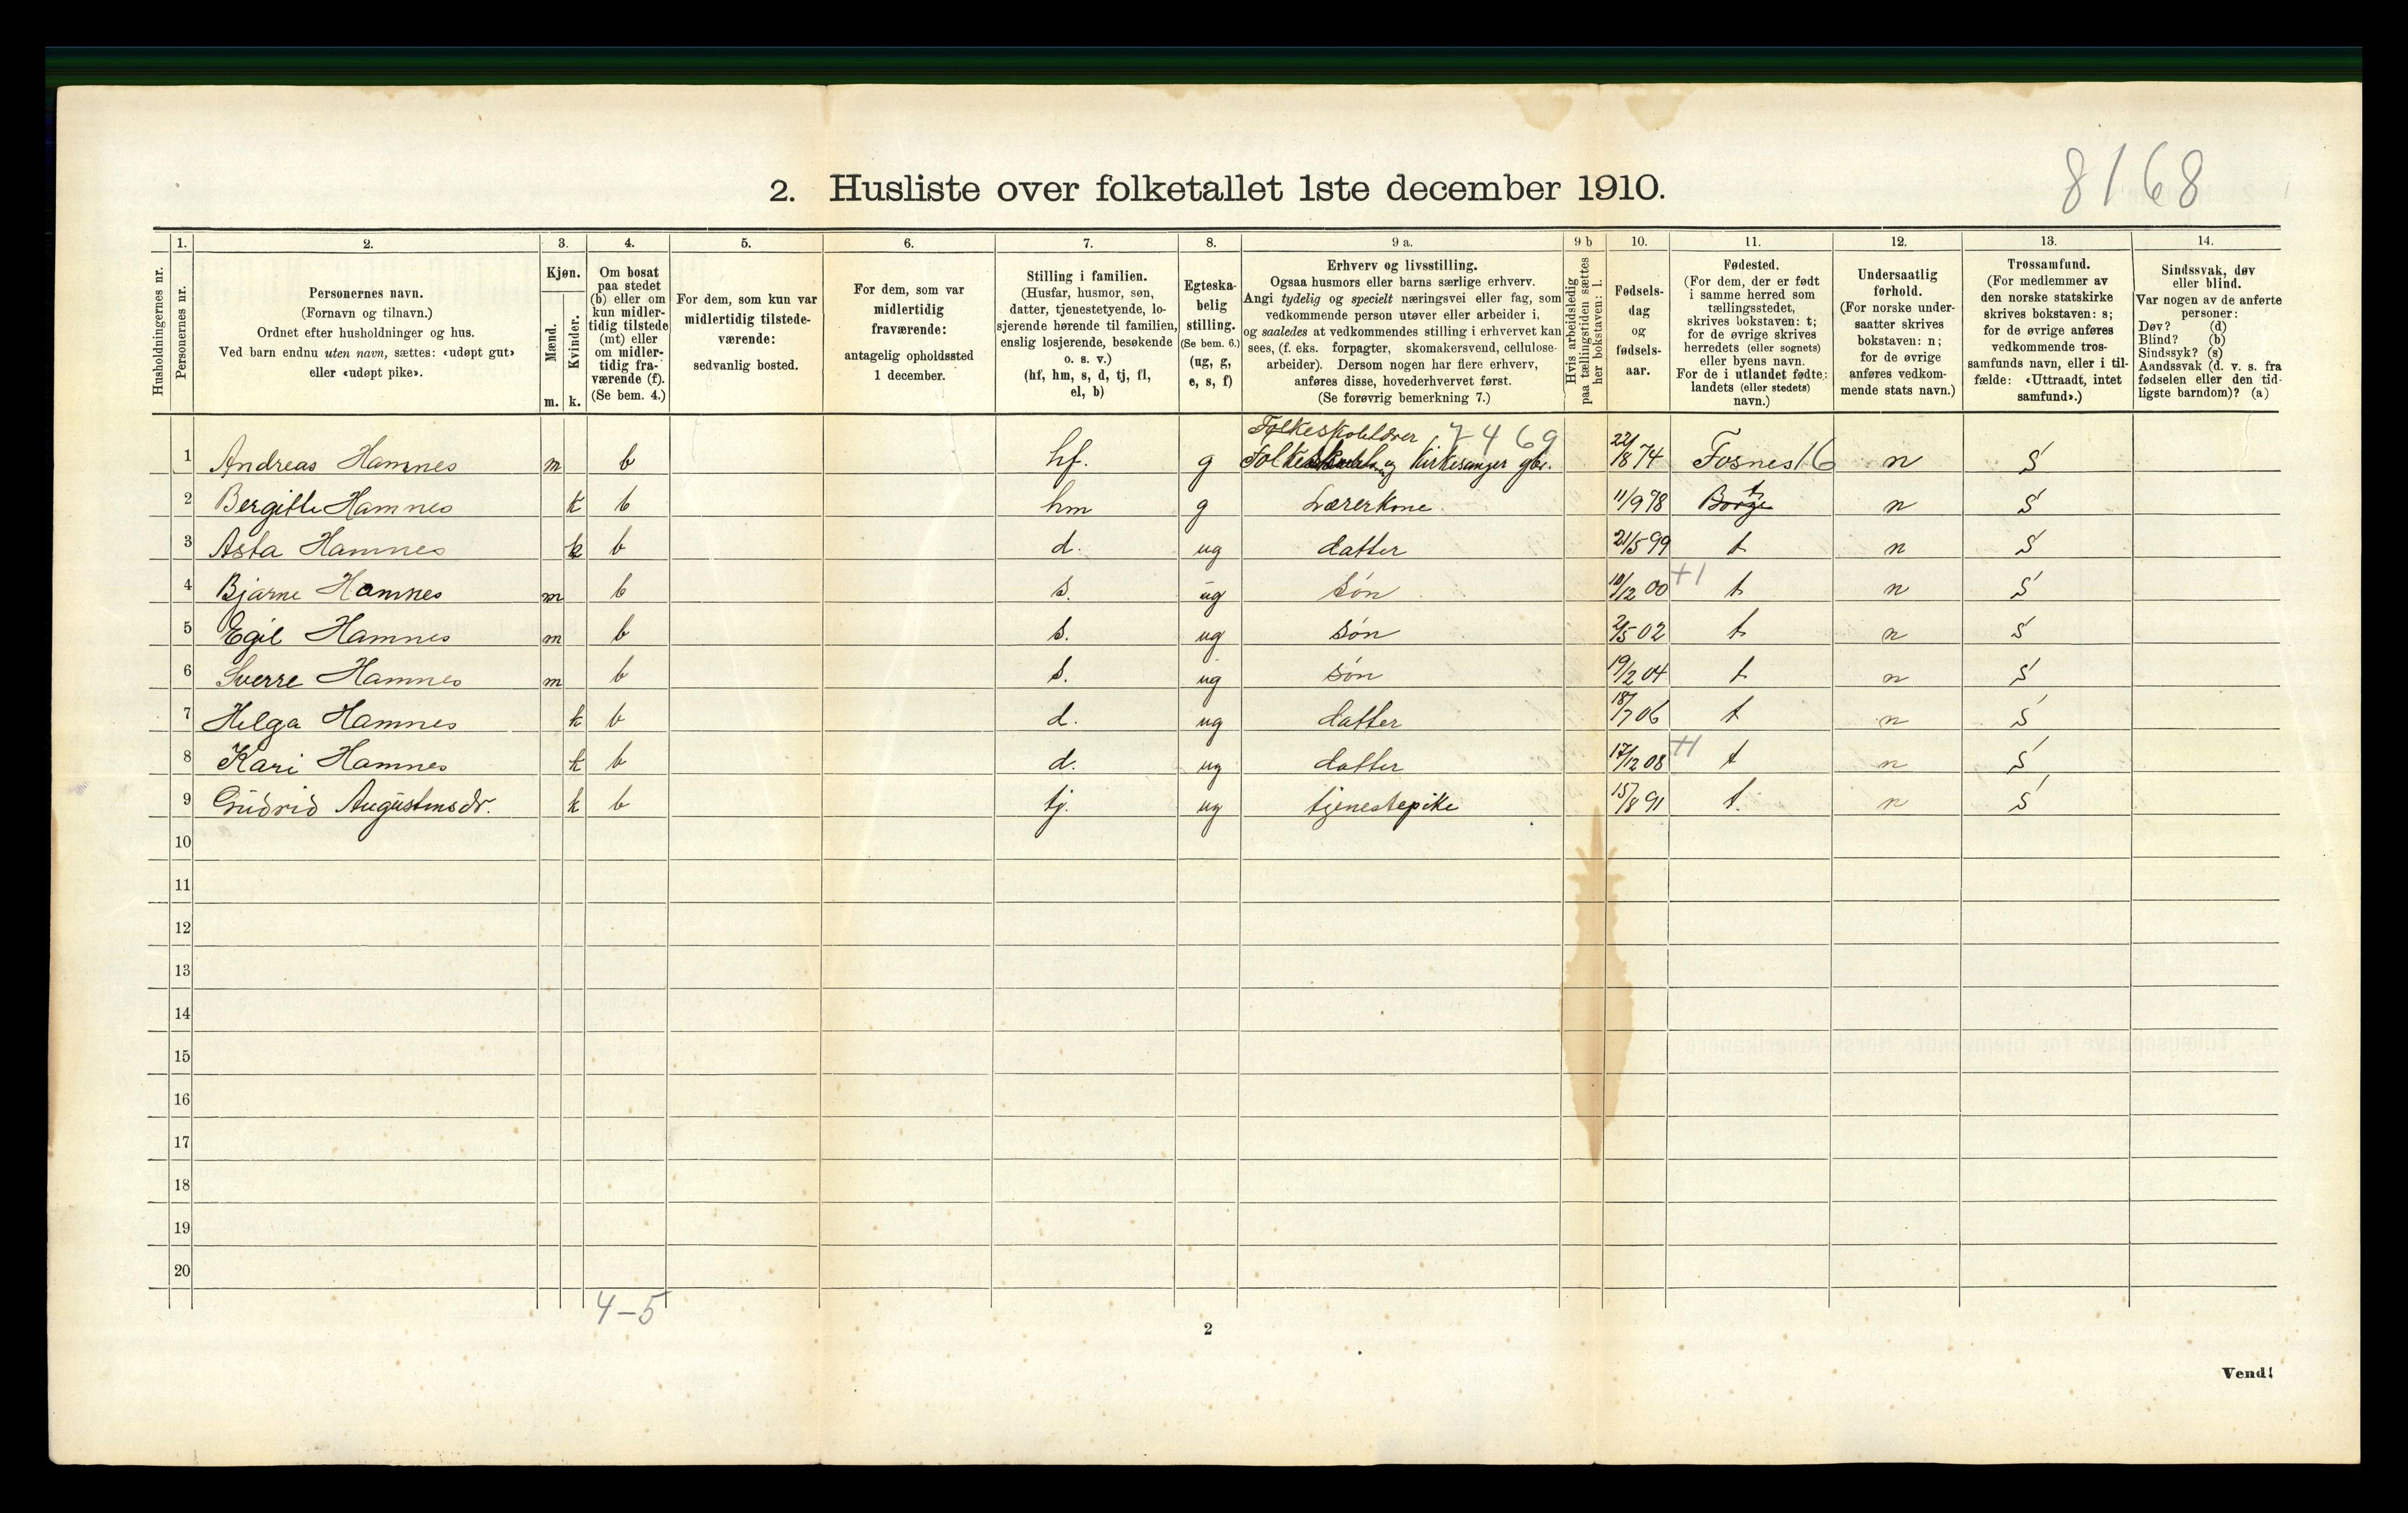 8168
2. Husliste over folketallet 1ste december 1910.
Husholdningernes nr.
1.
Personernes nr.
2.
Personernes navn.
(Fornavn og tilnavn.)
Ordnet efter husholdninger og hus.
Ved barn endnu uten navn, sættes: «udøpt gut»
eller «udøpt pike».
3.
Kjøn.
Mænd.
Kvinder.
m. k.
4.
Om bosat
paa stedet
(b) eller om
kun midler-
tidig tilstede
(mt) eller
om midler-
tidig fra-
værende (f).
(Se bem. 4.)
5.
For dem, som kun var
midlertidig tilstede-
værende:
sedvanlig bosted.
6.
For dem, som var
midlertidig
fraværende:
antagelig opholdssted
1 december.
7.
Stilling i familien.
(Husfar, husmor, søn,
datter, tjenestetyende, lo-
sjerende hørende til familien,
enslig losjerende, besøkende
o. s. v.)
(hf, hm, s, d, tj, fl,
el, b)
8.
Egteska-
belig
stilling.
(Se bem. 6.)
(ug, g,
e, s, f)
9 a.
Erhverv og livsstilling.
Ogsaa husmors eller barns særlige erhverv.
Angi tydelig og specielt næringsvei eller fag, som
vedkommende person utøver eller arbeider i,
og saaledes at vedkommendes stilling i erhvervet kan
sees, (f. eks. forpagter, skomakersvend, cellulose-
arbeider). Dersom nogen har flere erhverv,
anføres disse, hovederhvervet først.
(Se forøvrig bemerkning 7.)
9 b
Hvis arbeidsledig
paa tællingstiden sættes
her bokstaven: l.
10.
Fødsels-
dag
og
fødsels-
aar.
11.
Fødested.
(For dem, der er født
i samme herred som
tællingsstedet,
skrives bokstaven: t;
for de øvrige skrives
herredets (eller sognets)
eller byens navn.
For de i utlandet fødte:
landets (eller stedets)
navn.)
12.
Undersaatlig
forhold.
(For norske under-
saatter skrives
bokstaven: n;
for de øvrige
anføres vedkom-
mende stats navn.)
13.
Trossamfund.
(For medlemmer av
den norske statskirke
skrives bokstaven: s;
for de øvrige anføres
vedkommende tros-
samfunds navn, eller i til-
fælde: «Uttraadt, intet
samfund».)
14.
Sindssvak, døv
eller blind.
Var nogen av de anførte
personer:
Døv? (d)
Blind? (b)
Sindssyk? (s)
Aandssvak (d. v. s. fra
fødselen eller den tid-
ligste barndom)? (a)
Folkeskolelærer 7469
1 Andreas Hamnes m b hf. g Folke og kirkesanger gbr. 22/8 74 Fosnes 16 n S
2 Bergitte Hamnes k b hm g Lærerkone 11/9 78 Borge t n S
3 Asta Hamnes k b d. ug datter 21/5 99 t n S
4 Bjarne Hamnes m b s. ug søn 10/12 00 +1 t n S
5 Egil Hamnes m b s. ug søn 2/5 02 t n S
6 Sverre Hamnes m b s. ug søn 19/2 04 t n S
7 Helga Hamnes k b d. ug datter 18/7 06 t n S
8 Kari Hamnes k b d. ug datter 17/12 08 +1 t n S
9 Gudrid Augustinsdr. k b tj. ug tjenestepike 15/8 91 t. n S
10
11
12
13
14
15
16
17
18
19
20
4-5
2
Vend!